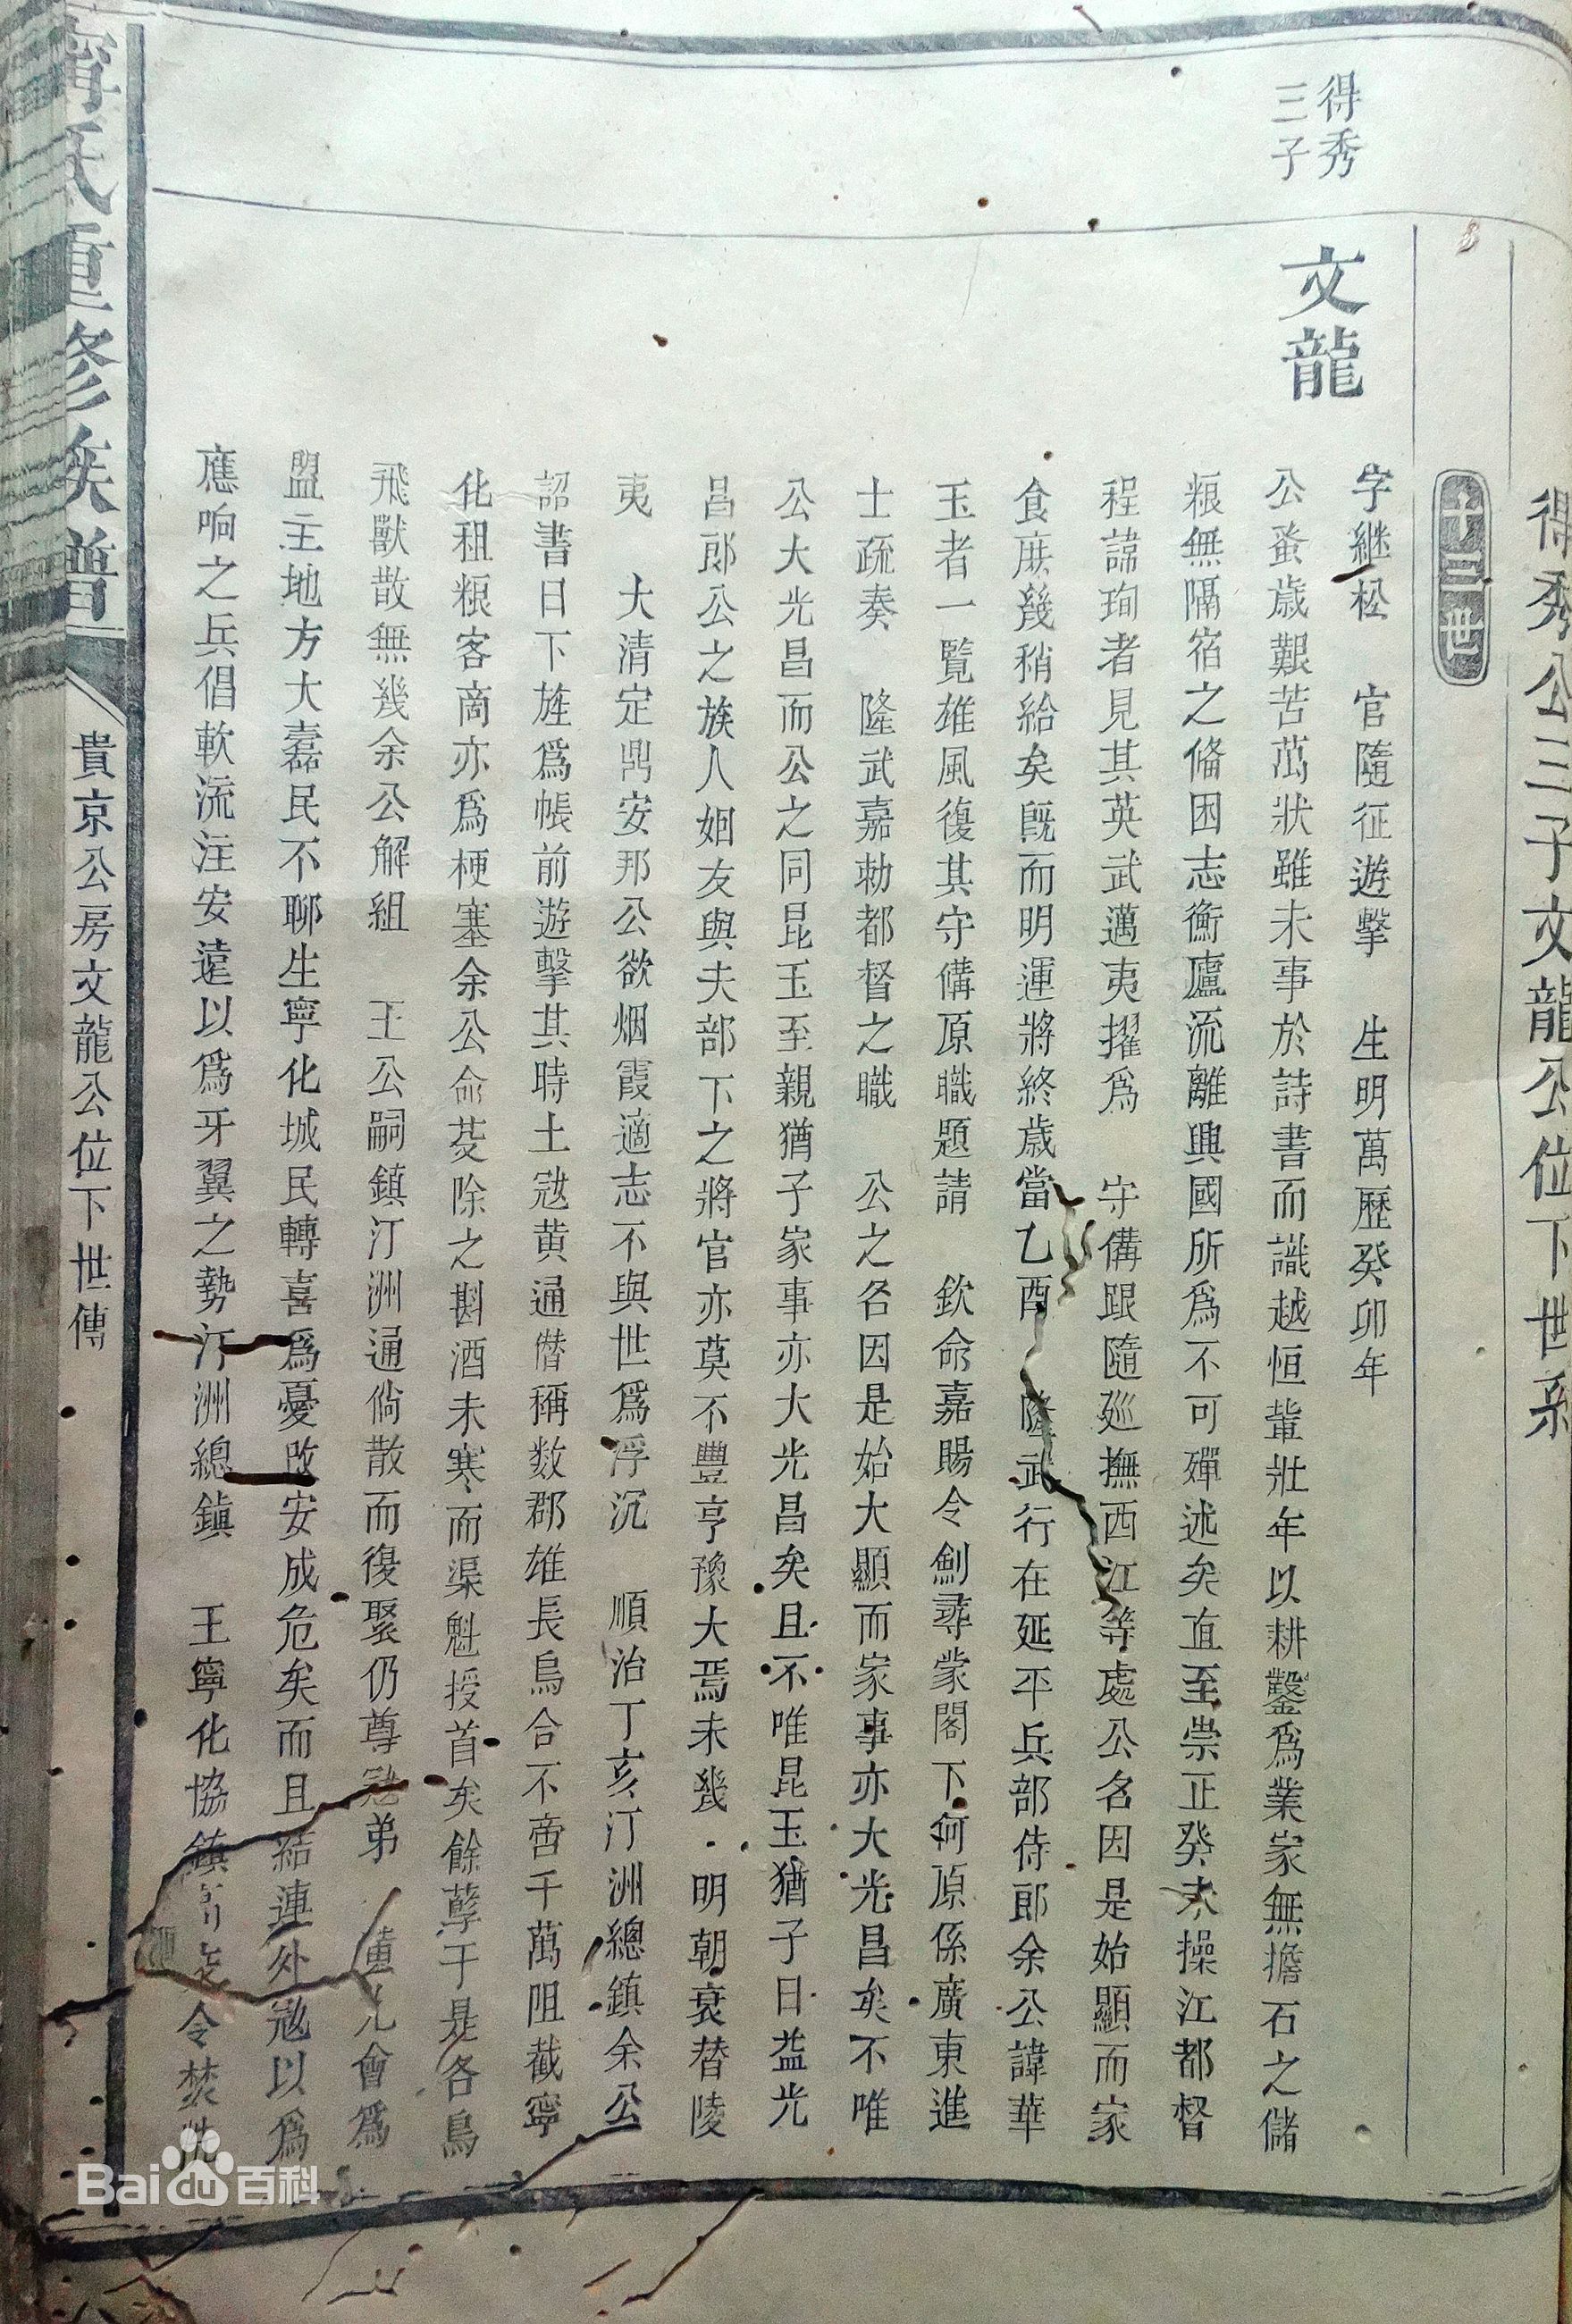 得秀公三子文龍公位下世系
十三世
得秀
三子
文龍
字継松　官隨征遊擊　生明萬歷癸卯年
公蚤歲艱苦萬狀雖未事於詩書而識越恒輩壯年以耕鑿爲業家無擔石之儲
粮無隔宿之俻困志衡廬流離興國所爲不可殫述矣直至崇正癸未操江都督
程諱珣者見其英武邁夷擢爲　守備跟隨廵撫西江等處公名因是始顯而家
食庶幾稍給矣旣而明運將終歲當乙酉　隆武行在延平兵部侍郎余公諱華
玉者一覧雄風復其守備原職題請　欽命嘉賜令劍尋蒙閣下何原係廣東進
士疏奏　隆武嘉勅都督之職　公之名因是始大顯而家事亦大光昌矣不唯
公大光昌而公之同昆玉至親猶子家事亦大光昌矣且不唯昆玉猶子日益光
昌郎公之族人姻友與夫部下之將官亦莫不豐亨豫大焉未幾　明朝衰替陵
夷　大清定鼎安邦公欲烟霞適志不與世爲浮沉　順治丁亥汀洲總鎮余公
詔書日下旌爲帳前遊擊其時土冦黄通僣稱数郡雄長烏合不啻千萬阻截寧
化租粮客啇亦爲梗塞余公命芟除之斟酒未寒而渠魁授首矣餘孽于是各鳥
飛獸散無幾余公解組　王公嗣鎮汀洲通倘散而復聚仍尊冦弟　會爲
盟主地方大嚣民不聊生寧化城民轉喜爲憂改安成危矣而且結連外冦以爲
應响之兵倡軟流注安遠以爲牙翼之勢汀洲總鎮　王寧化協鎮　令焚
甯氏重修族譜
貴京公房文龍公位下世傳
Baidu百科